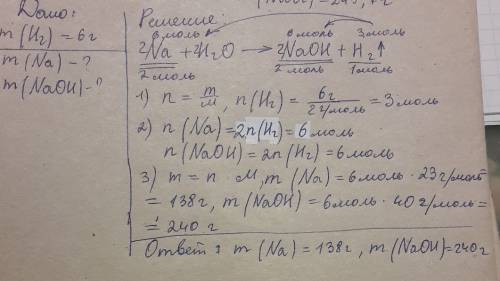 Дано:
m(H₂) = 6г
m(Na) - ?
m(NaOH) - ?
Решение:
6моль 6моль 3моль
2Na + 2H₂O → 2NaOH + H₂↑
2моль 2моль 1моль
1) n = m/M, n(H₂) = 6г/2г/моль = 3моль
2) n(Na) = 2n(H₂) = 6моль
n(NaOH) = 2n(H₂) = 6моль
3) m = n · M, m(Na) = 6моль · 23г/моль
= 138г, m(NaOH) = 6моль · 40г/моль =
= 240 г
Ответ: m(Na) = 138г, m(NaOH) = 240г